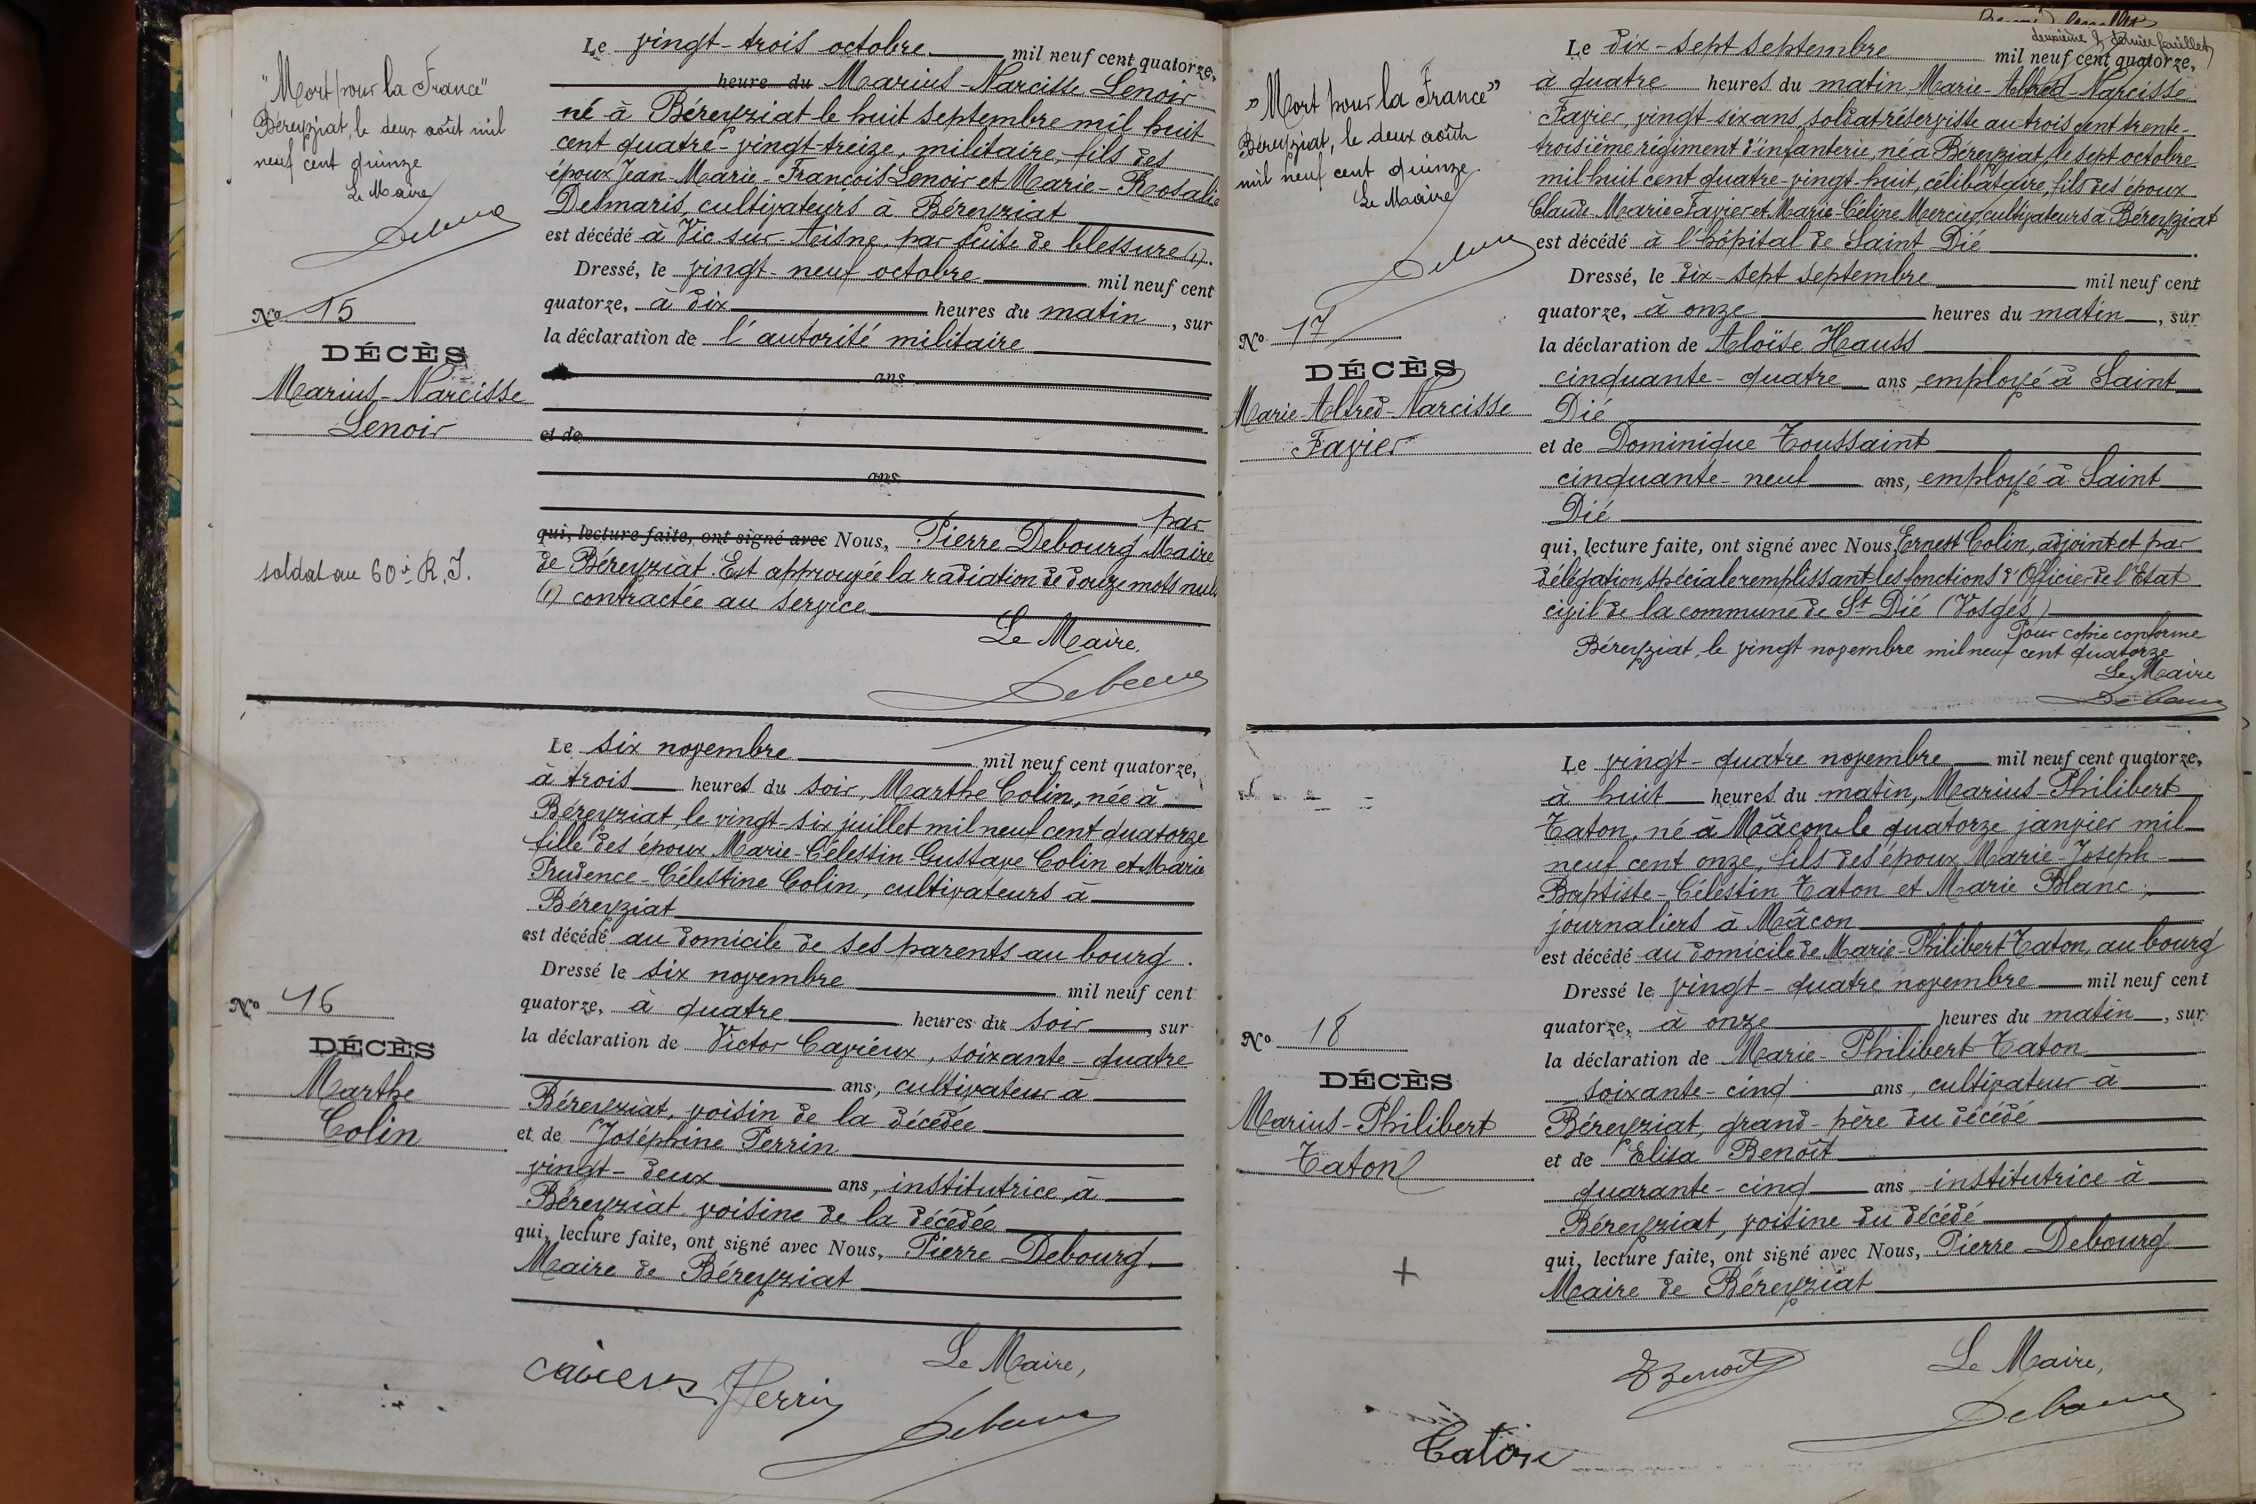 "Mort pour la France"
Béreyziat, le deux août mil
neuf cent quinze
Le Maire
N° 15
DÉCÈS
Marius-Narcisse
Lenoir
soldat au 60e R.I.
Le vingt-trois octobre mil neuf cent quatorze,
heure du Marius-Narcisse Lenoir
né à Béreyziat le huit septembre mil huit
cent quatre-vingt-treize, militaire, fils des
époux Jean-Marie-François Lenoir et Marie-Rosalie
Desmaris, cultivateurs à Béreyziat
est décédé à Vic-sur-Aisne, par suite de blessure (1).
Dressé, le vingt-neuf octobre mil neuf cent
quatorze, à dix heures du matin, sur
la déclaration de l'autorité militaire
ans
et de
ans
par
qui, lecture faite, ont signé avec Nous, Pierre Debourg Maire
de Béreyziat. Est approuvée la radiation de douze mots nuls
(1) contractée au service
Le Maire.
N° 16
DÉCÈS
Marthe
Colin
Le six novembre mil neuf cent quatorze,
à trois heures du soir, Marthe Colin, née à
Béreyziat, le vingt-six juillet mil neuf cent quatorze
fille des époux Marie-Célestin-Gustave Colin et Marie
Prudence-Célestine Colin, cultivateurs à
Béreyziat
est décédé au domicile de ses parents au bourg.
Dressé le six novembre mil neuf cent
quatorze, à quatre heures du soir, sur
la déclaration de Victor Cavieux, soixante-quatre
ans, cultivateur à
Béreyziat, voisin de la décédée
et de Joséphine Perrin
vingt-deux ans, institutrice, à
Béreyziat voisine de la décédée
qui, lecture faite, ont signé avec Nous, Pierre Debourg
Maire de Béreyziat
Le Maire,
JPerrin
deuxième & dernier feuillet
"Mort pour la France"
Béreyziat, le deux août
mil neuf cent quinze
Le Maire
N° 17
DÉCÈS
Marie-Alfred-Narcisse
Favier
Le dix-sept septembre mil neuf cent quatorze,
à quatre heures du matin, Marie-Alfred-Narcisse
Favier, vingt-six ans, soldat réserviste au trois cent trente-
troisième régiment d'infanterie, né à Béreyziat, le sept octobre
mil huit cent quatre-vingt-huit, célibataire, fils des époux
Claude-Marie Favier et Marie-Céline Mercier, cultivateurs à Béreyziat
est décédé à l'hôpital de Saint Dié
Dressé, le dix-sept septembre mil neuf cent
quatorze, à onze heures du matin, sur
la déclaration de Aloïse Hauss
cinquante-quatre ans, employé à Saint
Dié
et de Dominique Toussaint
cinquante-neuf ans, employé à Saint
Dié
qui, lecture faite, ont signé avec Nous, Ernest Colin, adjoint et par
délégation spéciale remplissant les fonctions d'Officier de l'Etat
civil de la commune de St Dié (Vosges)
Pour copie conforme
Béreyziat, le vingt novembre mil neuf cent quatorze
Le Maire
N° 18
DÉCÈS
Marius-Philibert
Taton
Le vingt-quatre novembre mil neuf cent quatorze,
à huit heures du matin, Marius-Philibert
Taton, né à Mâcon le quatorze janvier mil
neuf cent onze, fils des époux Marie-Joseph-
Baptiste-Célestin Taton et Marie Blanc,
journaliers à Mâcon
est décédé au domicile de Marie-Philibert Taton, au bourg
Dressé le vingt-quatre novembre mil neuf cent
quatorze, à onze heures du matin, sur
la déclaration de Marie-Philibert Taton
soixante-cinq ans, cultivateur à
Béreyziat, grand-père du décédé
et de Elisa Benoît
quarante-cinq ans institutrice à
Béreyziat, voisine du décédé
qui, lecture faite, ont signé avec Nous, Pierre Debourg
Maire de Béreyziat
Le Maire,
EBenoit
Taton